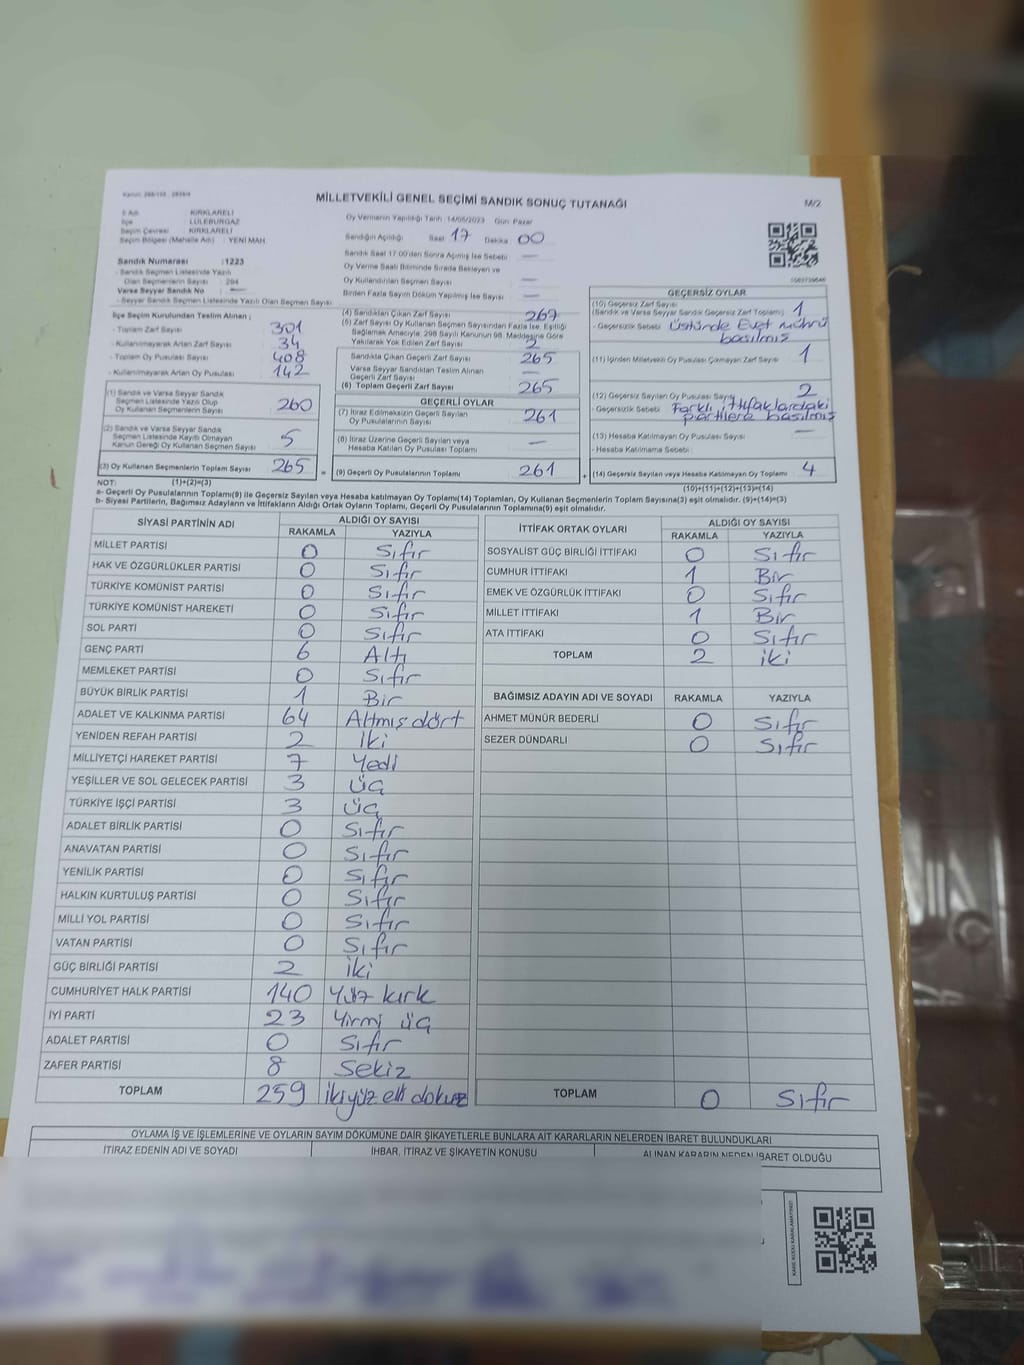 MİLLETVEKİLİ GENEL SEÇİMİ SANDIK SONUÇ TUTANAĞI
M/2
İl Adı : KIRKLARELİ
İlçe : LÜLEBURGAZ
Seçim Çevresi : KIRKLARELİ
Seçim Bölgesi (Mahalle Adı) : YENİ MAH.
Oy Vermenin Yapıldığı Tarih :14/05/2023 Gün: Pazar
Sandığın Açıldığı Saat 17 Dakika 00
Sandık Saat 17:00'den Sonra Açılmış İse Sebebi —
Oy Verme Saati Bitiminde Sırada Bekleyen ve
Oy Kullandırılan Seçmen Sayısı —
Birden Fazla Sayım Döküm Yapılmış İse Sayısı —
Sandık Numarası :1223
- Sandık Seçmen Listesinde Yazılı
Olan Seçmenlerin Sayısı : 294
Varsa Seyyar Sandık No : —
- Seyyar Sandık Seçmen Listesinde Yazılı Olan Seçmen Sayısı :
İlçe Seçim Kurulundan Teslim Alınan ;
- Toplam Zarf Sayısı 301
- Kullanılmayarak Artan Zarf Sayısı 34
- Toplam Oy Pusulası Sayısı 408
- Kullanılmayarak Artan Oy Pusulası 142
(1) Sandık ve Varsa Seyyar Sandık
Seçmen Listesinde Yazılı Olup
Oy Kullanan Seçmenlerin Sayısı 260
(2) Sandık ve Varsa Seyyar Sandık
Seçmen Listesinde Kayıtlı Olmayan
Kanun Gereği Oy Kullanan Seçmen Sayısı 5
(3) Oy Kullanan Seçmenlerin Toplam Sayısı 265
(4) Sandıktan Çıkan Zarf Sayısı 267
(5) Zarf Sayısı Oy Kullanan Seçmen Sayısından Fazla İse, Eşitliği
Sağlamak Amacıyla; 298 Sayılı Kanunun 98. Maddesine Göre
Yakılarak Yok Edilen Zarf Sayısı 2
Sandıkta Çıkan Geçerli Zarf Sayısı 265
Varsa Seyyar Sandıktan Teslim Alınan
Geçerli Zarf Sayısı —
(6) Toplam Geçerli Zarf Sayısı 265
GEÇERLİ OYLAR
(7) İtiraz Edilmeksizin Geçerli Sayılan
Oy Pusulalarının Sayısı 261
(8) İtiraz Üzerine Geçerli Sayılan veya
Hesaba Katılan Oy Pusulaları Toplamı —
= (9) Geçerli Oy Pusulalarının Toplamı 261
GEÇERSİZ OYLAR
(10) Geçersiz Zarf Sayısı
(Sandık ve Varsa Seyyar Sandık Geçersiz Zarf Toplamı) 1
- Geçersizlik Sebebi : Üstünde Evet mührü
basılmış
(11) İçinden Milletvekili Oy Pusulası Çıkmayan Zarf Sayısı 1
(12) Geçersiz Sayılan Oy Pusulası Sayısı 2
- Geçersizlik Sebebi : Farklı ittifaklardaki
partilere basılmış
(13) Hesaba Katılmayan Oy Pusulası Sayısı —
- Hesaba Katılmama Sebebi :
+ (14) Geçersiz Sayılan veya Hesaba Katılmayan Oy Toplamı 4
NOT: (1)+(2)=(3) (10)+(11)+(12)+(13)=(14)
a- Geçerli Oy Pusulalarının Toplamı(9) ile Geçersiz Sayılan veya Hesaba katılmayan Oy Toplamı(14) Toplamları, Oy Kullanan Seçmenlerin Toplam Sayısına(3) eşit olmalıdır. (9)+(14)=(3)
b- Siyasi Partilerin, Bağımsız Adayların ve İttifakların Aldığı Ortak Oyların Toplamı, Geçerli Oy Pusulalarının Toplamına(9) eşit olmalıdır.
SİYASİ PARTİNİN ADI ALDIĞI OY SAYISI
RAKAMLA YAZIYLA
MİLLET PARTİSİ 0 Sıfır
HAK VE ÖZGÜRLÜKLER PARTİSİ 0 Sıfır
TÜRKİYE KOMÜNİST PARTİSİ 0 Sıfır
TÜRKİYE KOMÜNİST HAREKETİ 0 Sıfır
SOL PARTİ 0 Sıfır
GENÇ PARTİ 6 Altı
MEMLEKET PARTİSİ 0 Sıfır
BÜYÜK BİRLİK PARTİSİ 1 Bir
ADALET VE KALKINMA PARTİSİ 64 Altmış dört
YENİDEN REFAH PARTİSİ 2 İki
MİLLİYETÇİ HAREKET PARTİSİ 7 Yedi
YEŞİLLER VE SOL GELECEK PARTİSİ 3 üç
TÜRKİYE İŞÇİ PARTİSİ 3 üç
ADALET BİRLİK PARTİSİ 0 Sıfır
ANAVATAN PARTİSİ 0 Sıfır
YENİLİK PARTİSİ 0 Sıfır
HALKIN KURTULUŞ PARTİSİ 0 Sıfır
MİLLİ YOL PARTİSİ 0 Sıfır
VATAN PARTİSİ 0 Sıfır
GÜÇ BİRLİĞİ PARTİSİ 2 iki
CUMHURİYET HALK PARTİSİ 140 Yüz kırk
İYİ PARTİ 23 Yirmi üç
ADALET PARTİSİ 0 Sıfır
ZAFER PARTİSİ 8 Sekiz
TOPLAM 259 ikiyüz elli dokuz
İTTİFAK ORTAK OYLARI ALDIĞI OY SAYISI
RAKAMLA YAZIYLA
SOSYALİST GÜÇ BİRLİĞİ İTTİFAKI 0 Sıfır
CUMHUR İTTİFAKI 1 Bir
EMEK VE ÖZGÜRLÜK İTTİFAKI 0 Sıfır
MİLLET İTTİFAKI 1 Bir
ATA İTTİFAKI 0 Sıfır
TOPLAM 2 iki
BAĞIMSIZ ADAYIN ADI VE SOYADI RAKAMLA YAZIYLA
AHMET MÜNÜR BEDERLİ 0 Sıfır
SEZER DÜNDARLI 0 Sıfır
TOPLAM 0 Sıfır
OYLAMA İŞ VE İŞLEMLERİNE VE OYLARIN SAYIM DÖKÜMÜNE DAİR ŞİKAYETLERLE BUNLARA AİT KARARLARIN NELERDEN İBARET BULUNDUKLARI
İTİRAZ EDENİN ADI VE SOYADI İHBAR, İTİRAZ VE ŞİKAYETİN KONUSU ALINAN KARARIN NEDEN İBARET OLDUĞU
KARE KODU KARALAMAYINIZ!